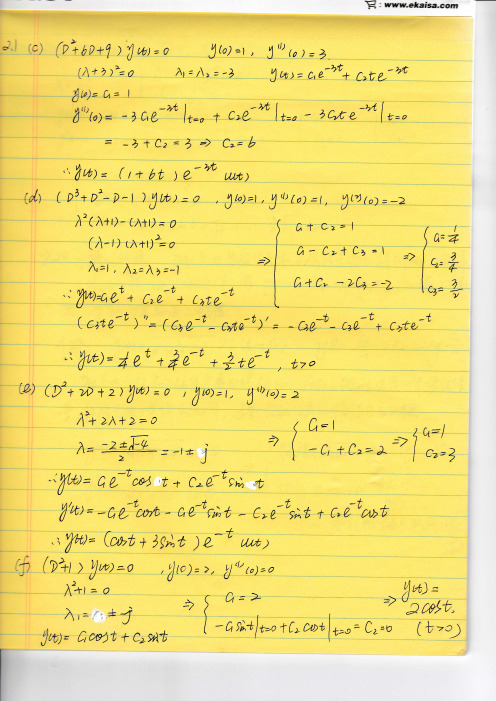 : www.ekaisa.com
2.1 (c) (D²+6D+9) y(t)=0   y(0)=1, y⁽¹⁾(0)=3
(λ+3)²=0   λ₁=λ₂=-3   y(t)=C₁e^{-3t}+C₂te^{-3t}
y(0)=C₁=1
y⁽¹⁾(0)=-3C₁e^{-3t}|t=0 + C₂e^{-3t}|t=0 - 3C₂te^{-3t}|t=0
=-3+C₂=3 ⇒ C₂=6
∴ y(t)=(1+6t)e^{-3t} u(t)
(d) (D³+D²-D-1) y(t)=0 , y(0)=1, y⁽¹⁾(0)=1, y⁽²⁾(0)=-2
λ²(λ+1)-(λ+1)=0
(λ-1)(λ+1)²=0
λ₁=1, λ₂=λ₃=-1
⇒ { C₁+C₂=1
C₁-C₂+C₃=1
C₁+C₂-2C₃=-2
⇒ { C₁=1/4
C₂=3/4
C₃=3/2
∴ y(t)=C₁e^t+C₂e^{-t}+C₃te^{-t}
(C₃te^{-t})''=(C₃e^{-t}-C₃te^{-t})'=-C₃e^{-t}-C₃e^{-t}+C₃te^{-t}
∴ y(t)=1/4e^t+3/4e^{-t}+3/2te^{-t}, t>0
(e) (D²+2D+2) y(t)=0 , y(0)=1, y⁽¹⁾(0)=2
λ²+2λ+2=0
λ=(-2±√(4-4))/2=-1±j
⇒ { C₁=1
-C₁+C₂=2
⇒ { C₁=1
C₂=3
∴ y(t)=C₁e^{-t}cos t+C₂e^{-t}sin t
y'(t)=-C₁e^{-t}cost-C₁e^{-t}sint-C₂e^{-t}sint+C₂e^{-t}cost
∴ y(t)=(cost+3sint)e^{-t} u(t)
(f) (D²+1) y(t)=0 , y(0)=2, y⁽¹⁾(0)=0
λ²+1=0
λ₁= ±j
y(t)=C₁cost+C₂sint
⇒ { C₁=2
-C₁sint|t=0+C₂cost|t=0=C₂=0
⇒ y(t)=
2cost.
(t>0)